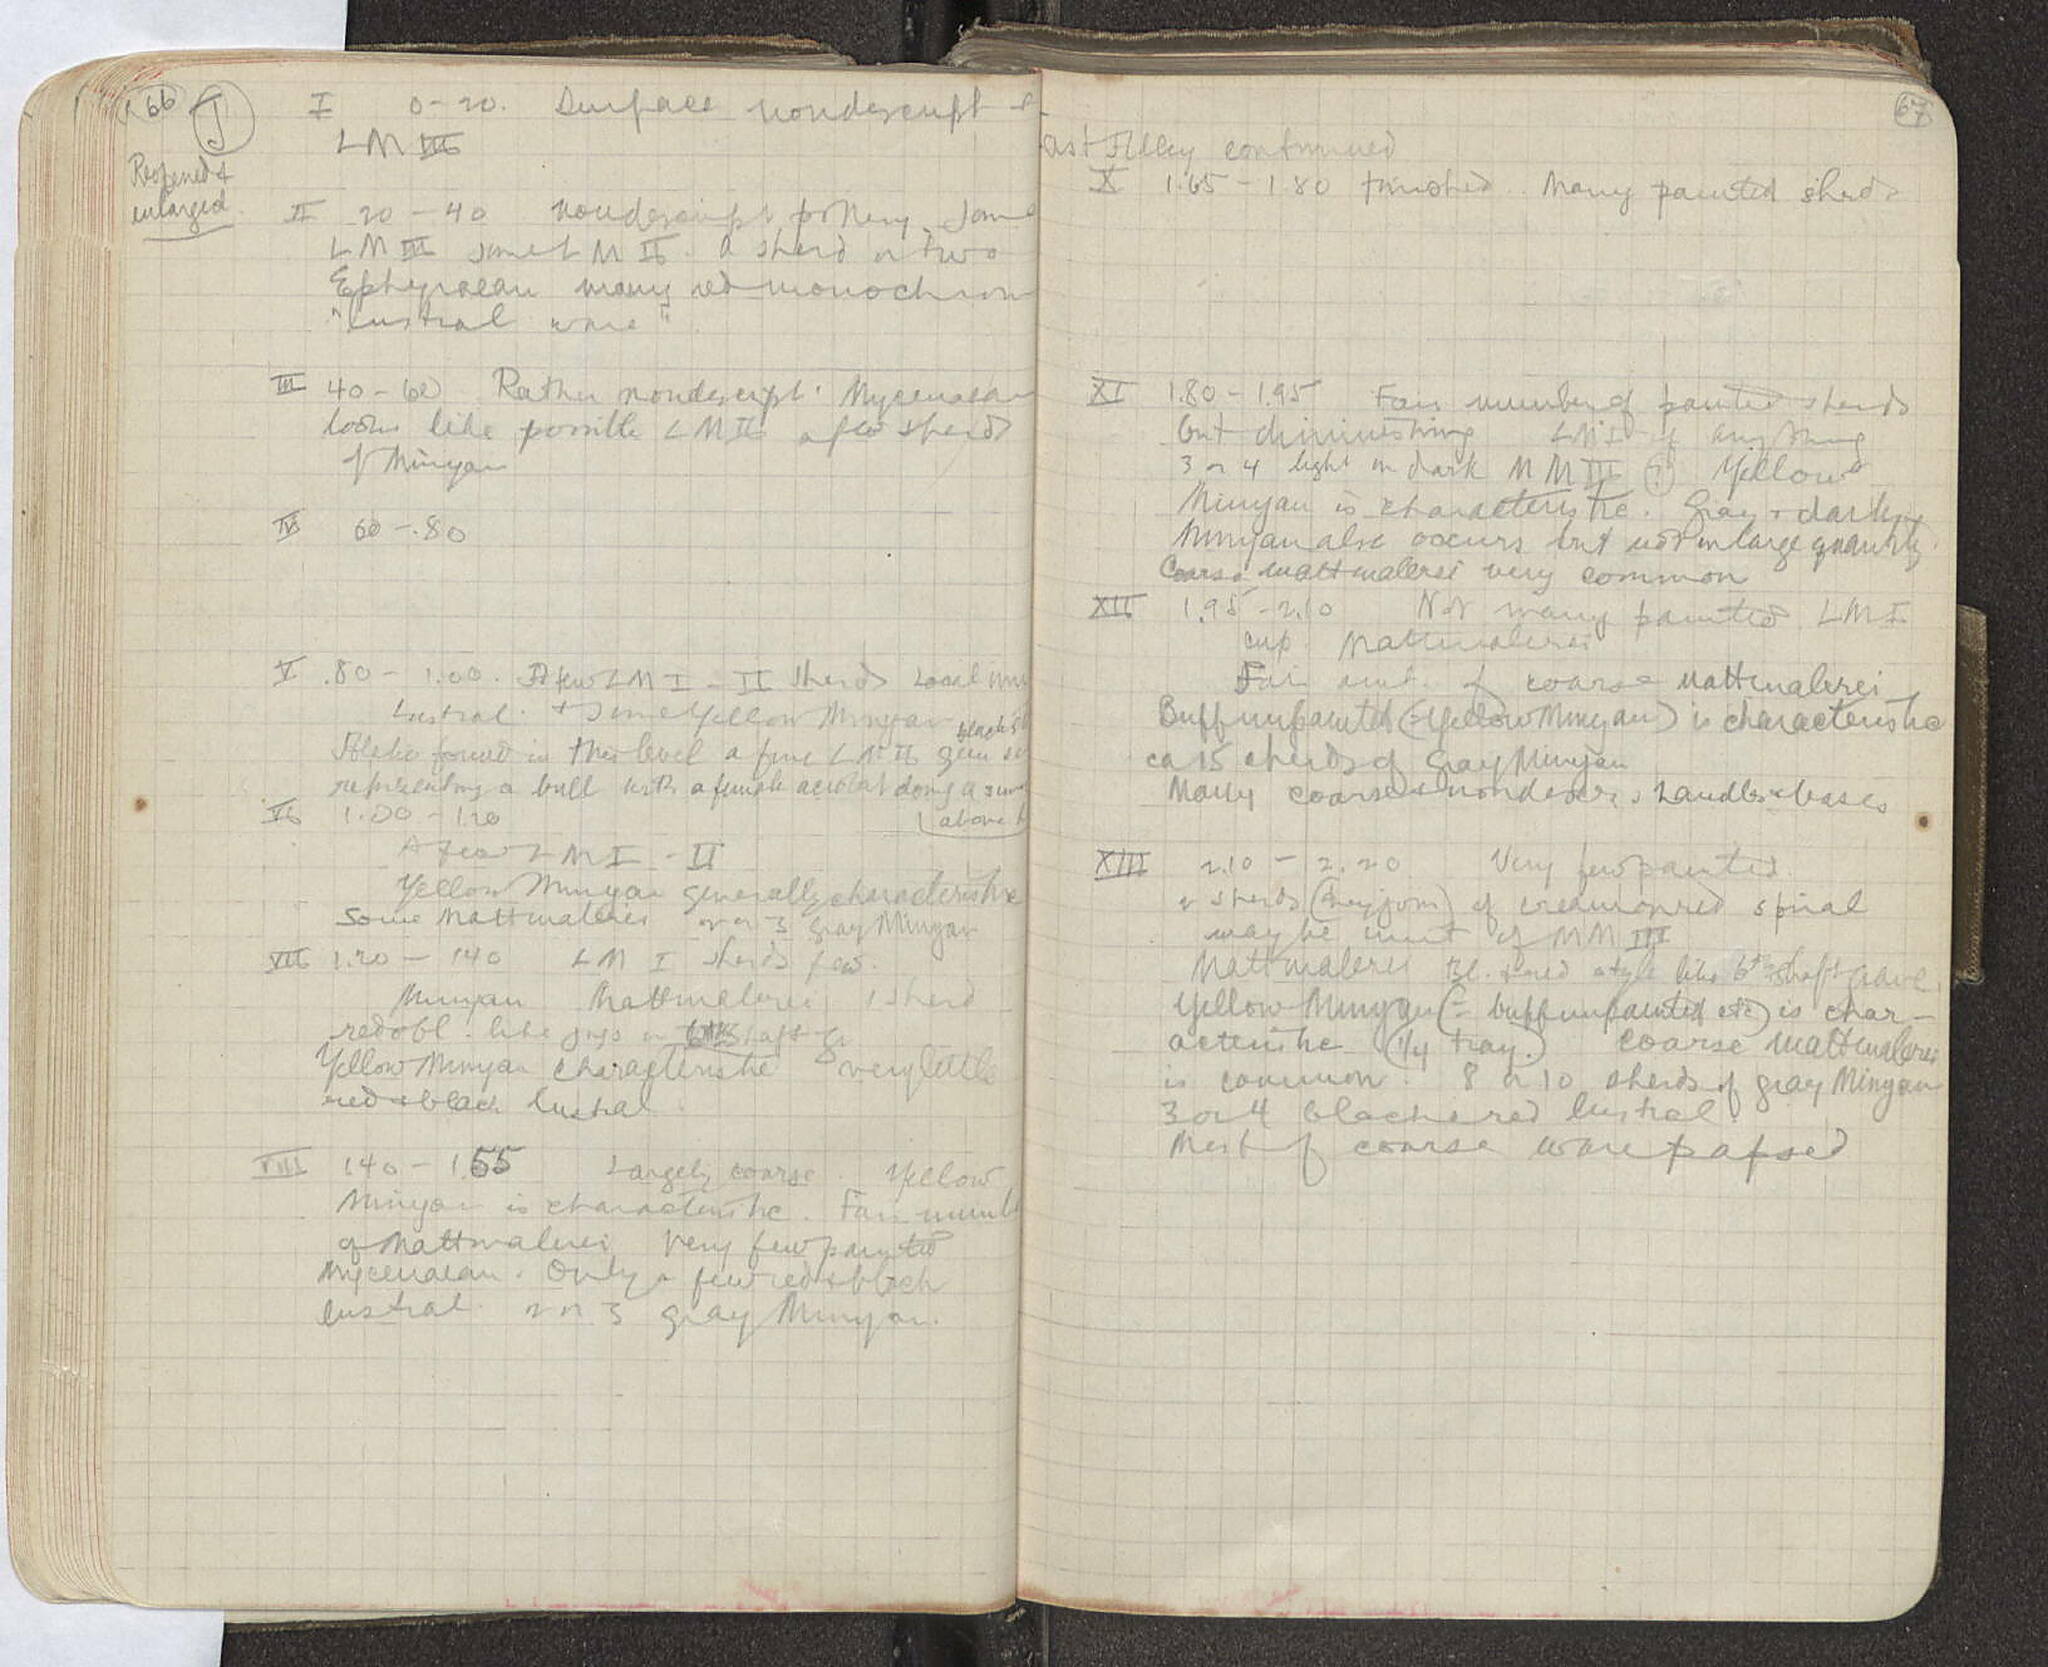 66 J
Reopened &
enlarged
I 0-20. Surface nondescript &
LM III
II 20-40 nondescript pottery. Some
LM III some LM II. A sherd or two
Ephyraean many red monochrom
"lustral ware"
III 40-60 Rather nondescript. Mycenaean
looks like possible LM II a few sherds
of Minyan
IV 60-.80
V .80-1.00. A few LM I-II sherds Local
Lustral. + Some Yellow Minyan
black
Also found in this level a fine LM II gem
representing a bull with a female acrobat doing a
above
VI 1.00-1.20
A few LM I-II
Yellow Minyan generally characteristic
Some Mattmalerei 2 or 3 gray Minyan
VII 1.20-1.40 LM I sherds few.
Minyan Mattmalerei 1 sherd
red & bl. like jugs in 6th shaft gr
Yellow Minyan characteristic very little
red & black lustral
VIII 1.40-1.55 Largely coarse. Yellow
Minyan is characteristic. Fair numb
of Mattmalerei Very few painted
Mycenaean. Only a few red & black
lustral. 2 or 3 gray Minyan.
67
ast Alley continued
X 1.65-1.80 finished. Many painted sherds
XI 1.80-1.95 Fair number of painted sherds
but diminishing LM I if anything
3 or 4 light on dark MM III (?) Yellow
Minyan is characteristic. Gray & dark
Minyan also occurs but not in large quantity.
Coarse mattmalerei very common
XII 1.95-2.10 Not many painted LM I
cup. Mattmalerei
Fair amt. of coarse mattmalerei
Buff unpainted (=Yellow Minyan) is characteristic
ca 15 sherds of gray Minyan
Many coarse & nondescr. handles & bases
XIII 2.10-2.20 Very few painted.
2 sherds (they join) of spiral
maybe imit of MM III
Mattmalerei Bl. & red style like 6th shaft grave.
Yellow Minyan (= buff unpainted etc) is char-
acteristic (1/4 tray.) Coarse mattmalerei
is common. 8 or 10 sherds of gray Minyan
3 or 4 black & red lustral.
Most of coarse ware papsed